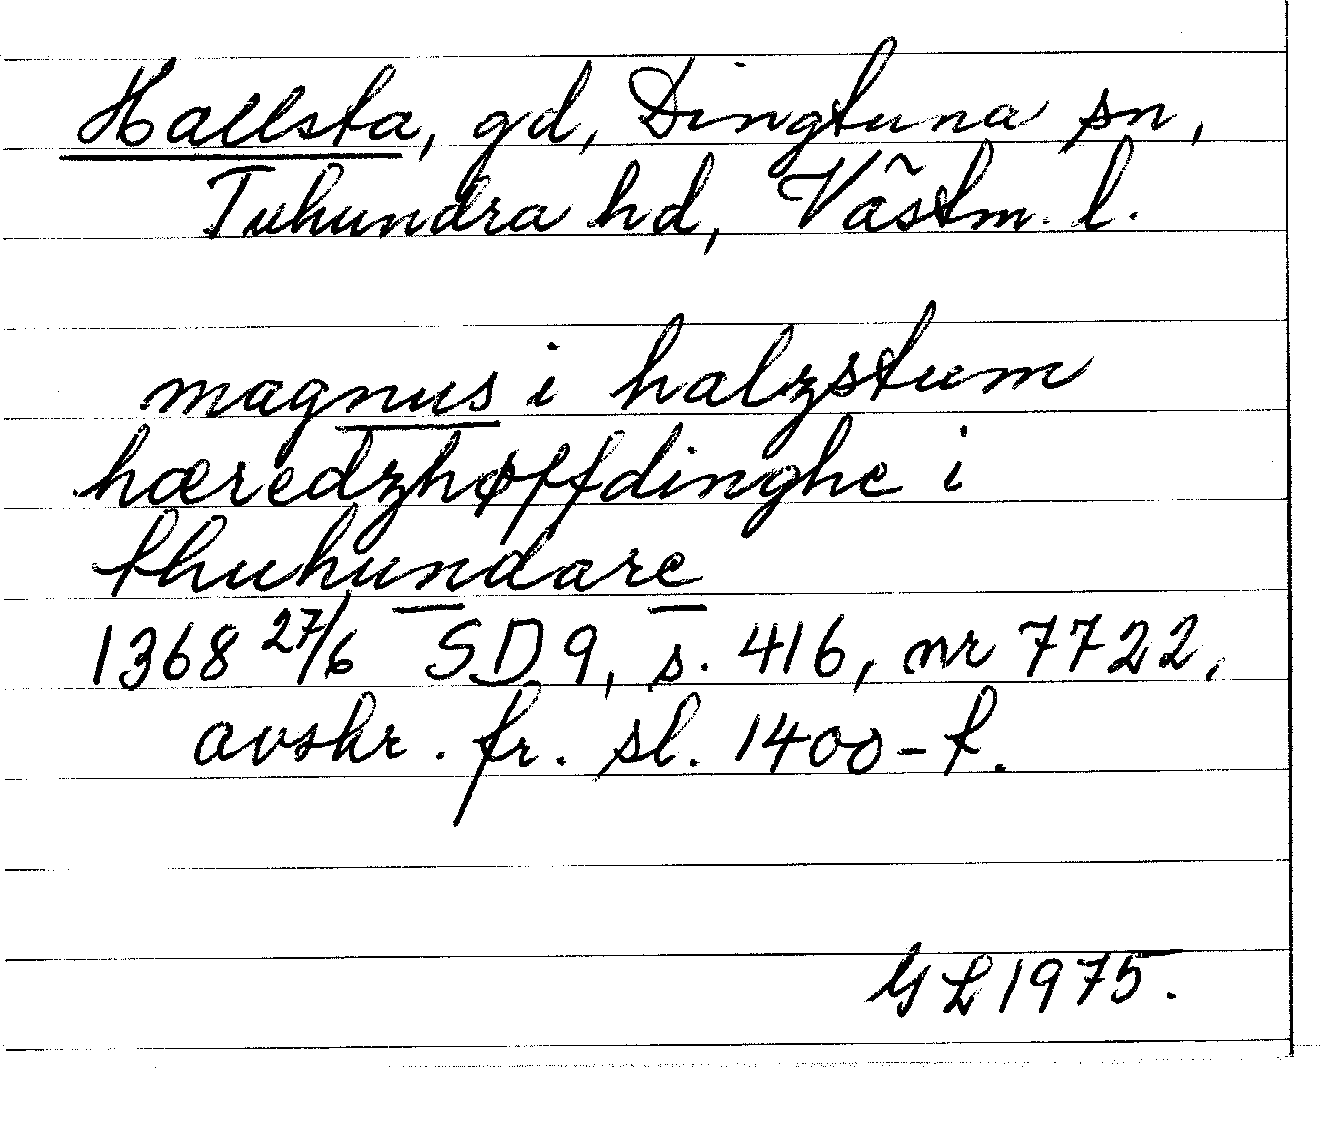 Hallsta, gd, Dingtuna sn,
Tuhundra hd, Västm. l.
magnus i halzstum
hæredzhøffdinghe i
thuhundare
1368 27/6 SD 9, s. 416, nr 7722,
avskr. fr. sl. 1400-t.
GL 1975.